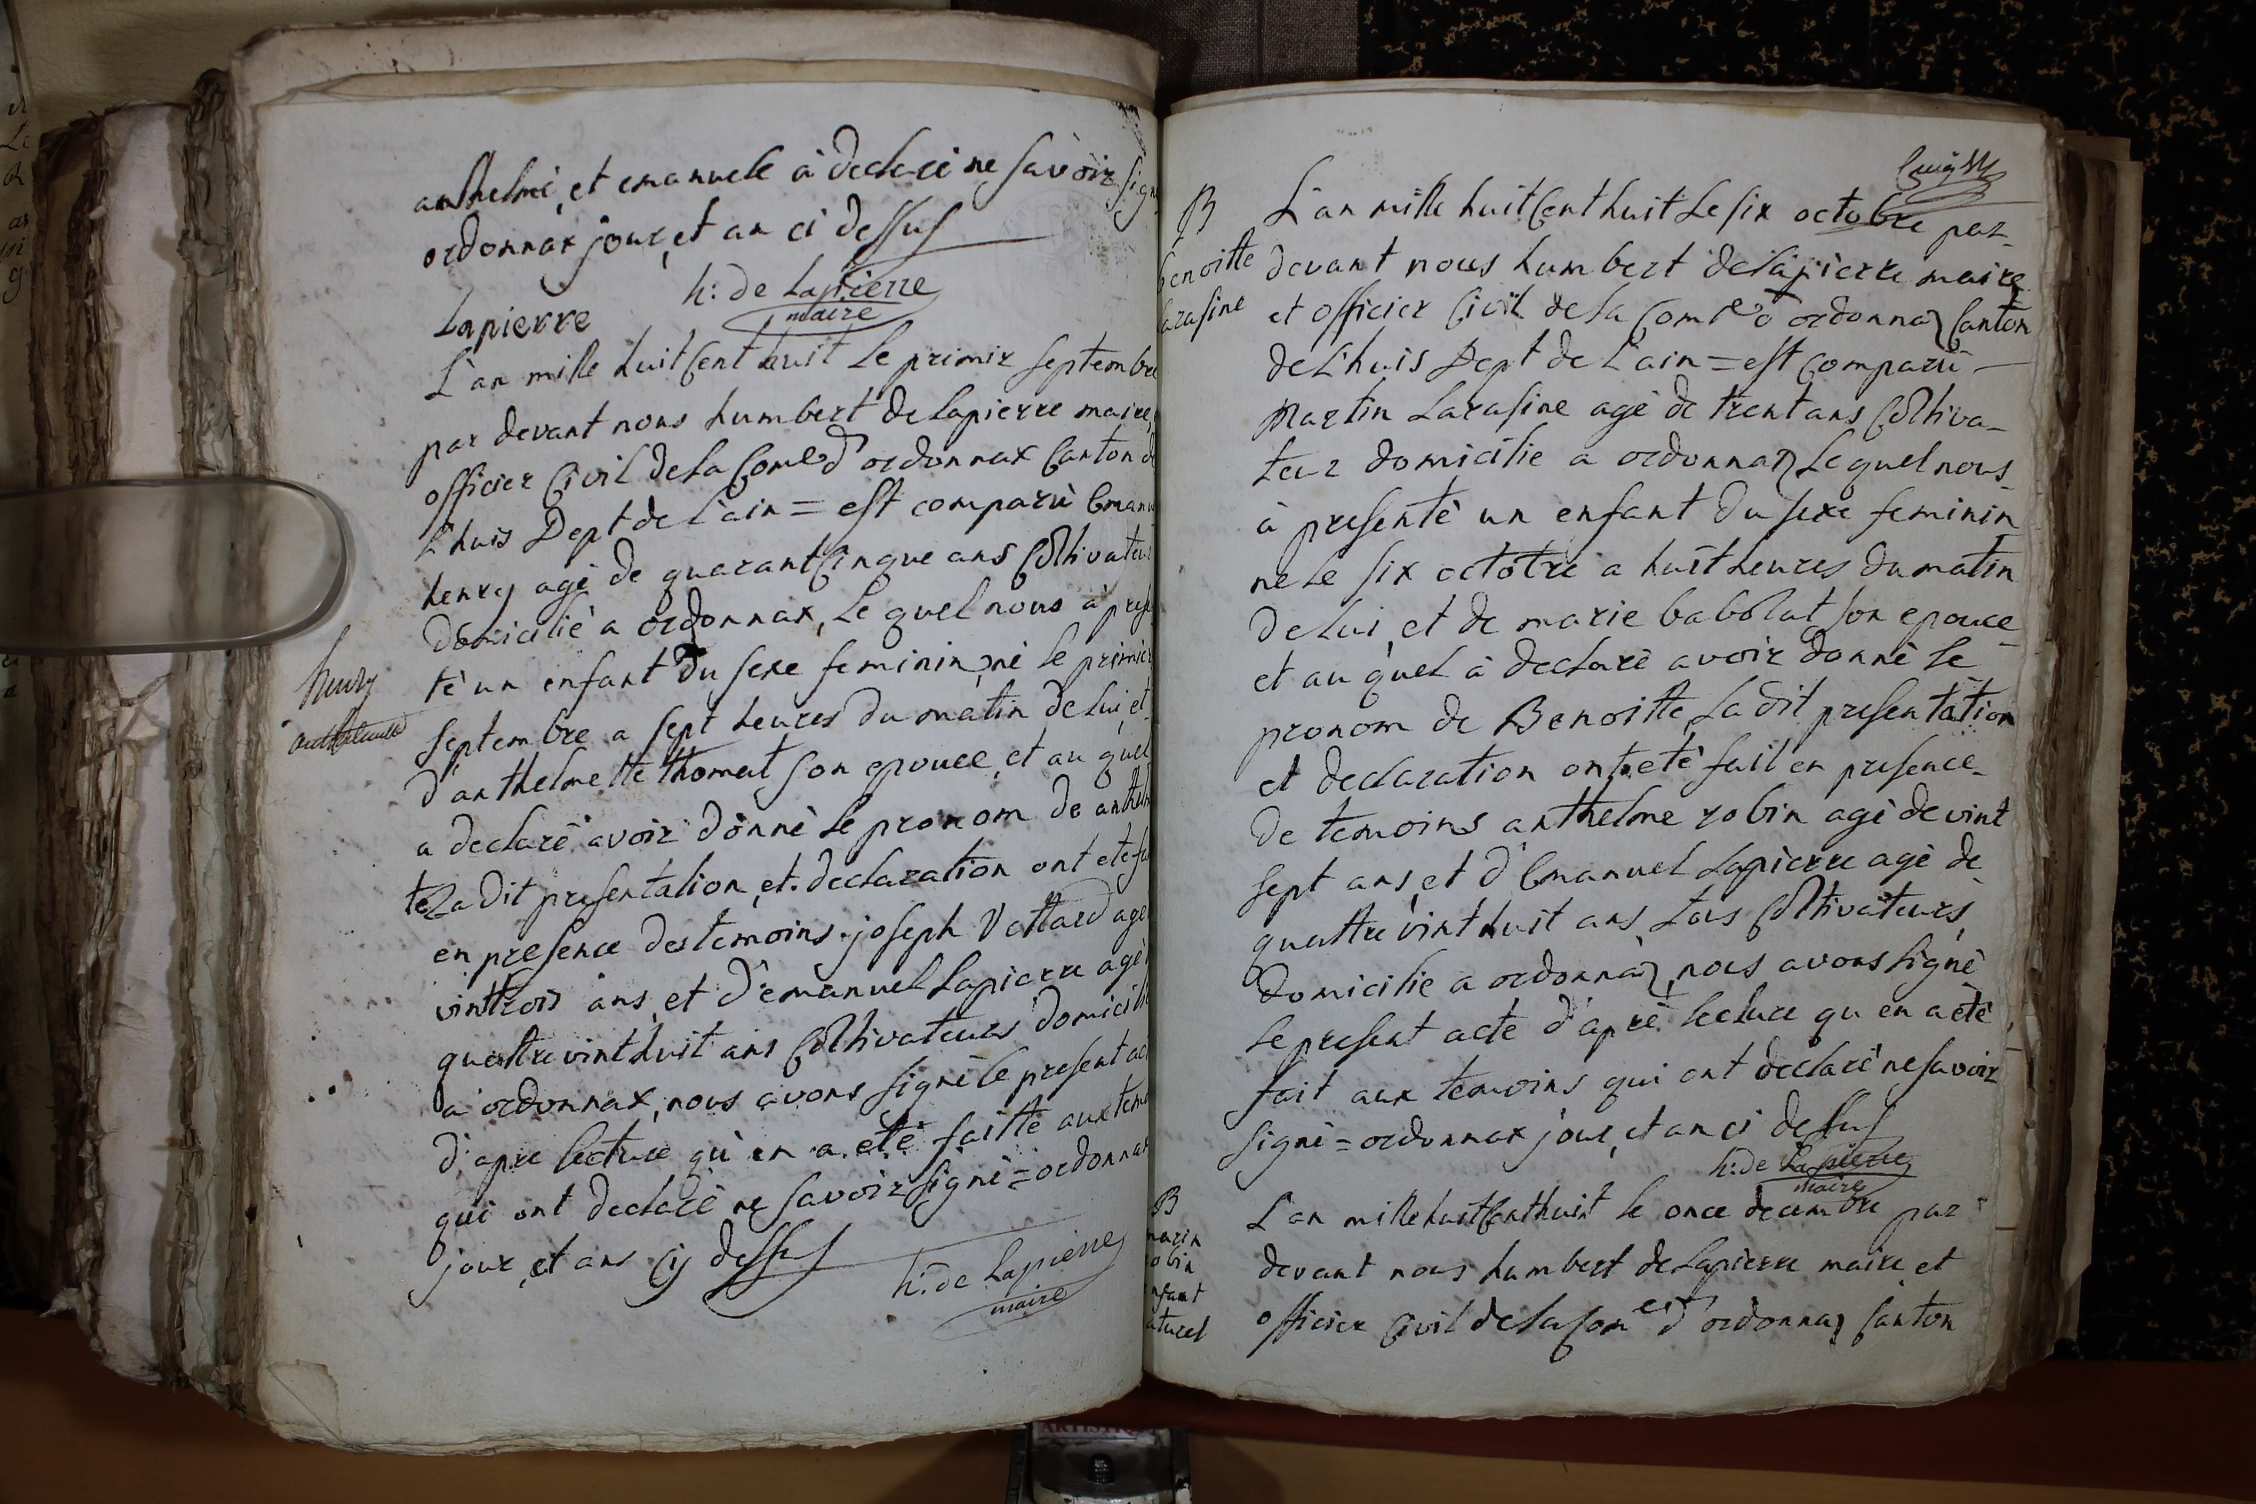 anthelmè, et emanuele à declaré ne savoir signé
ordonnax jour, et an ci dessus
h: de Lapierre
maire
Lapierre
L'an mille huit Cent huit Le primir septembre
par devant nous humbert de Lapierre maire,
officier Civil de la Com^e d'ordonnax Canton de
L'huis Dept de L'ain = est comparù Emanu
henry agè de quarant Cinque ans Coltivateur
Domiciliè a ordonnax, Le quel nous à prese
tè un enfant Du sexe feminin, nè le primier
septembre a sept heures du matin de Lui, et
d'anthelmette thomat son epouce, et au quel
a declarè avoir donnè Le pronom de anthelm
te La dit presentation, et declaration ont ete fa
en presence des temoins joseph Vettard age
vintrois ans, et d'emanuel Lapierre agè
quattrevint huit ans Coltivateurs domicilie
à ordonnax, nous avons signè le present ac
d'apre lecture qu'en a etè faitte aux temo
qui ont declarè ne savoir signè = ordonnax
jour, et ans Cy dessus
h: de Lapierre
maire
henry
B
benoitte
arasine
L'an mille huit Cent huit Le six octobre par
devant nous humbert de Lapierre maire
et officier Civil de la Com^e d'ordonnaz Canton
de L'huis Dept de L'ain = est Comparù
Martin Larasine agè de trent ans Coltiva-
teur domicilie a ordonnaz Le quel nous
à presentè un enfant Du sexe feminin
nè Le six octobre a huit heures du matin
de Lui, et de marie babolat son epouce
et au quel à declarè avoir donnè Le
pronom de Benoitte, La dit presentation
et declaration ont etè fait en presence
De temoins anthelme robin agè de vint
sept ans, et d'Emanuel Lapierre agè de
quattre vint huit ans, tous Coltivateurs
domicilie a ordonnaz, nous avons signè
Le present acte d'aprè lecture qu'en a etè
fait aux temoins qui ont declarè ne savoir
signè = ordonnax jour, et an ci dessus
h: de Lapierre
maire
B
marin
obin
nfant
aturel
L'an mille huit Cent huit le once decembre par
devant nous humbert de Lapierre maire, et
officier Civil de la Com^e d'ordonnaz Canton